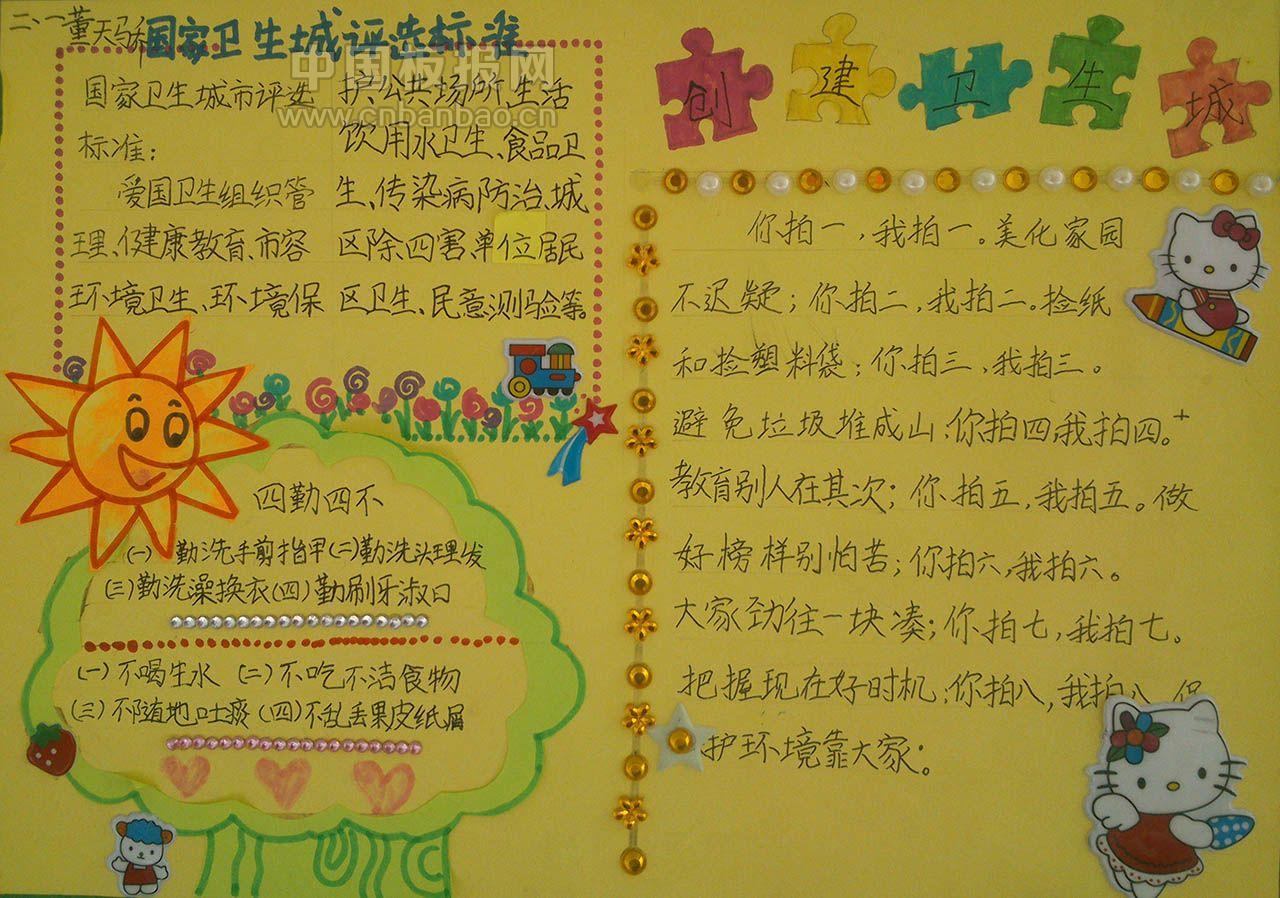 二、一董天马
国家卫生城评选标准
中国板报网
www.cnbanbao.cn
国家卫生城市评选
标准：
爱国卫生组织管
理、健康教育、市容
环境卫生、环境保
护、公共场所、生活
饮用水卫生、食品卫
生、传染病防治、城
区除四害、单位居民
区卫生、民意测验等。
四勤四不
(一) 勤洗手剪指甲(二)勤洗头理发
(三)勤洗澡换衣(四)勤刷牙漱口
(一)不喝生水 (二)不吃不洁食物
(三)不随地吐痰(四)不乱丢果皮纸屑
创建卫生城
你拍一，我拍一。美化家园
不迟疑；你拍二，我拍二。捡纸
和捡塑料袋；你拍三，我拍三。
避免垃圾堆成山，你拍四，我拍四。
教育别人在其次；你拍五，我拍五。做
好榜样别怕苦；你拍六，我拍六。
大家劲往一块凑；你拍七，我拍七。
把握现在好时机；你拍八，我拍八，保
护环境靠大家。